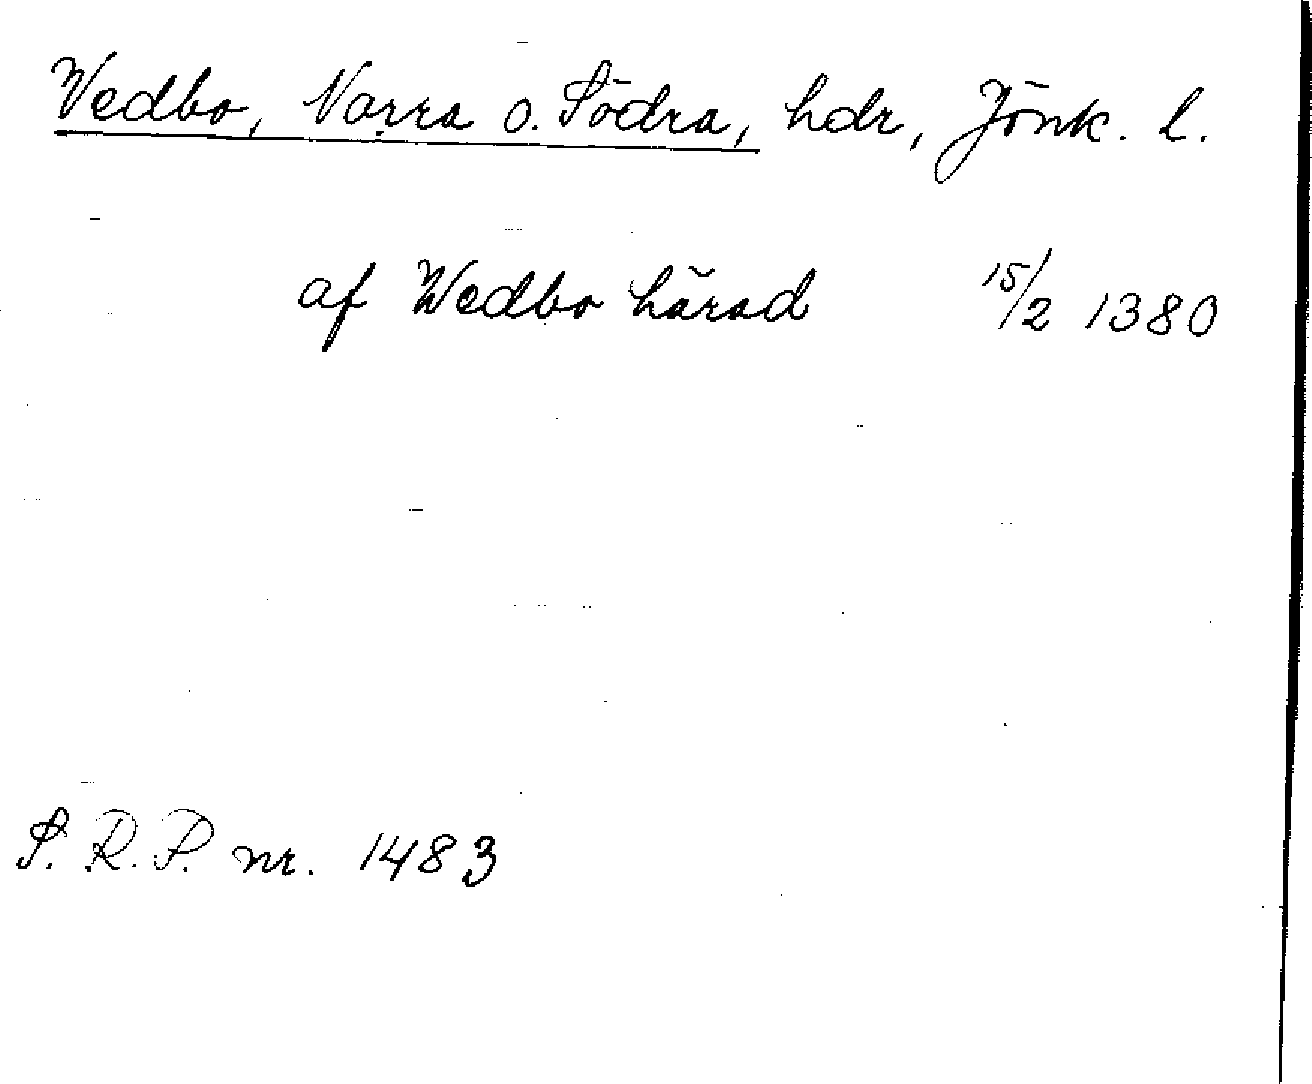 Vedbo, Norra o. Södra, hdr, Jönk. l.
af Wedbo härad 15/2 1380
S. R. P. nr. 1483